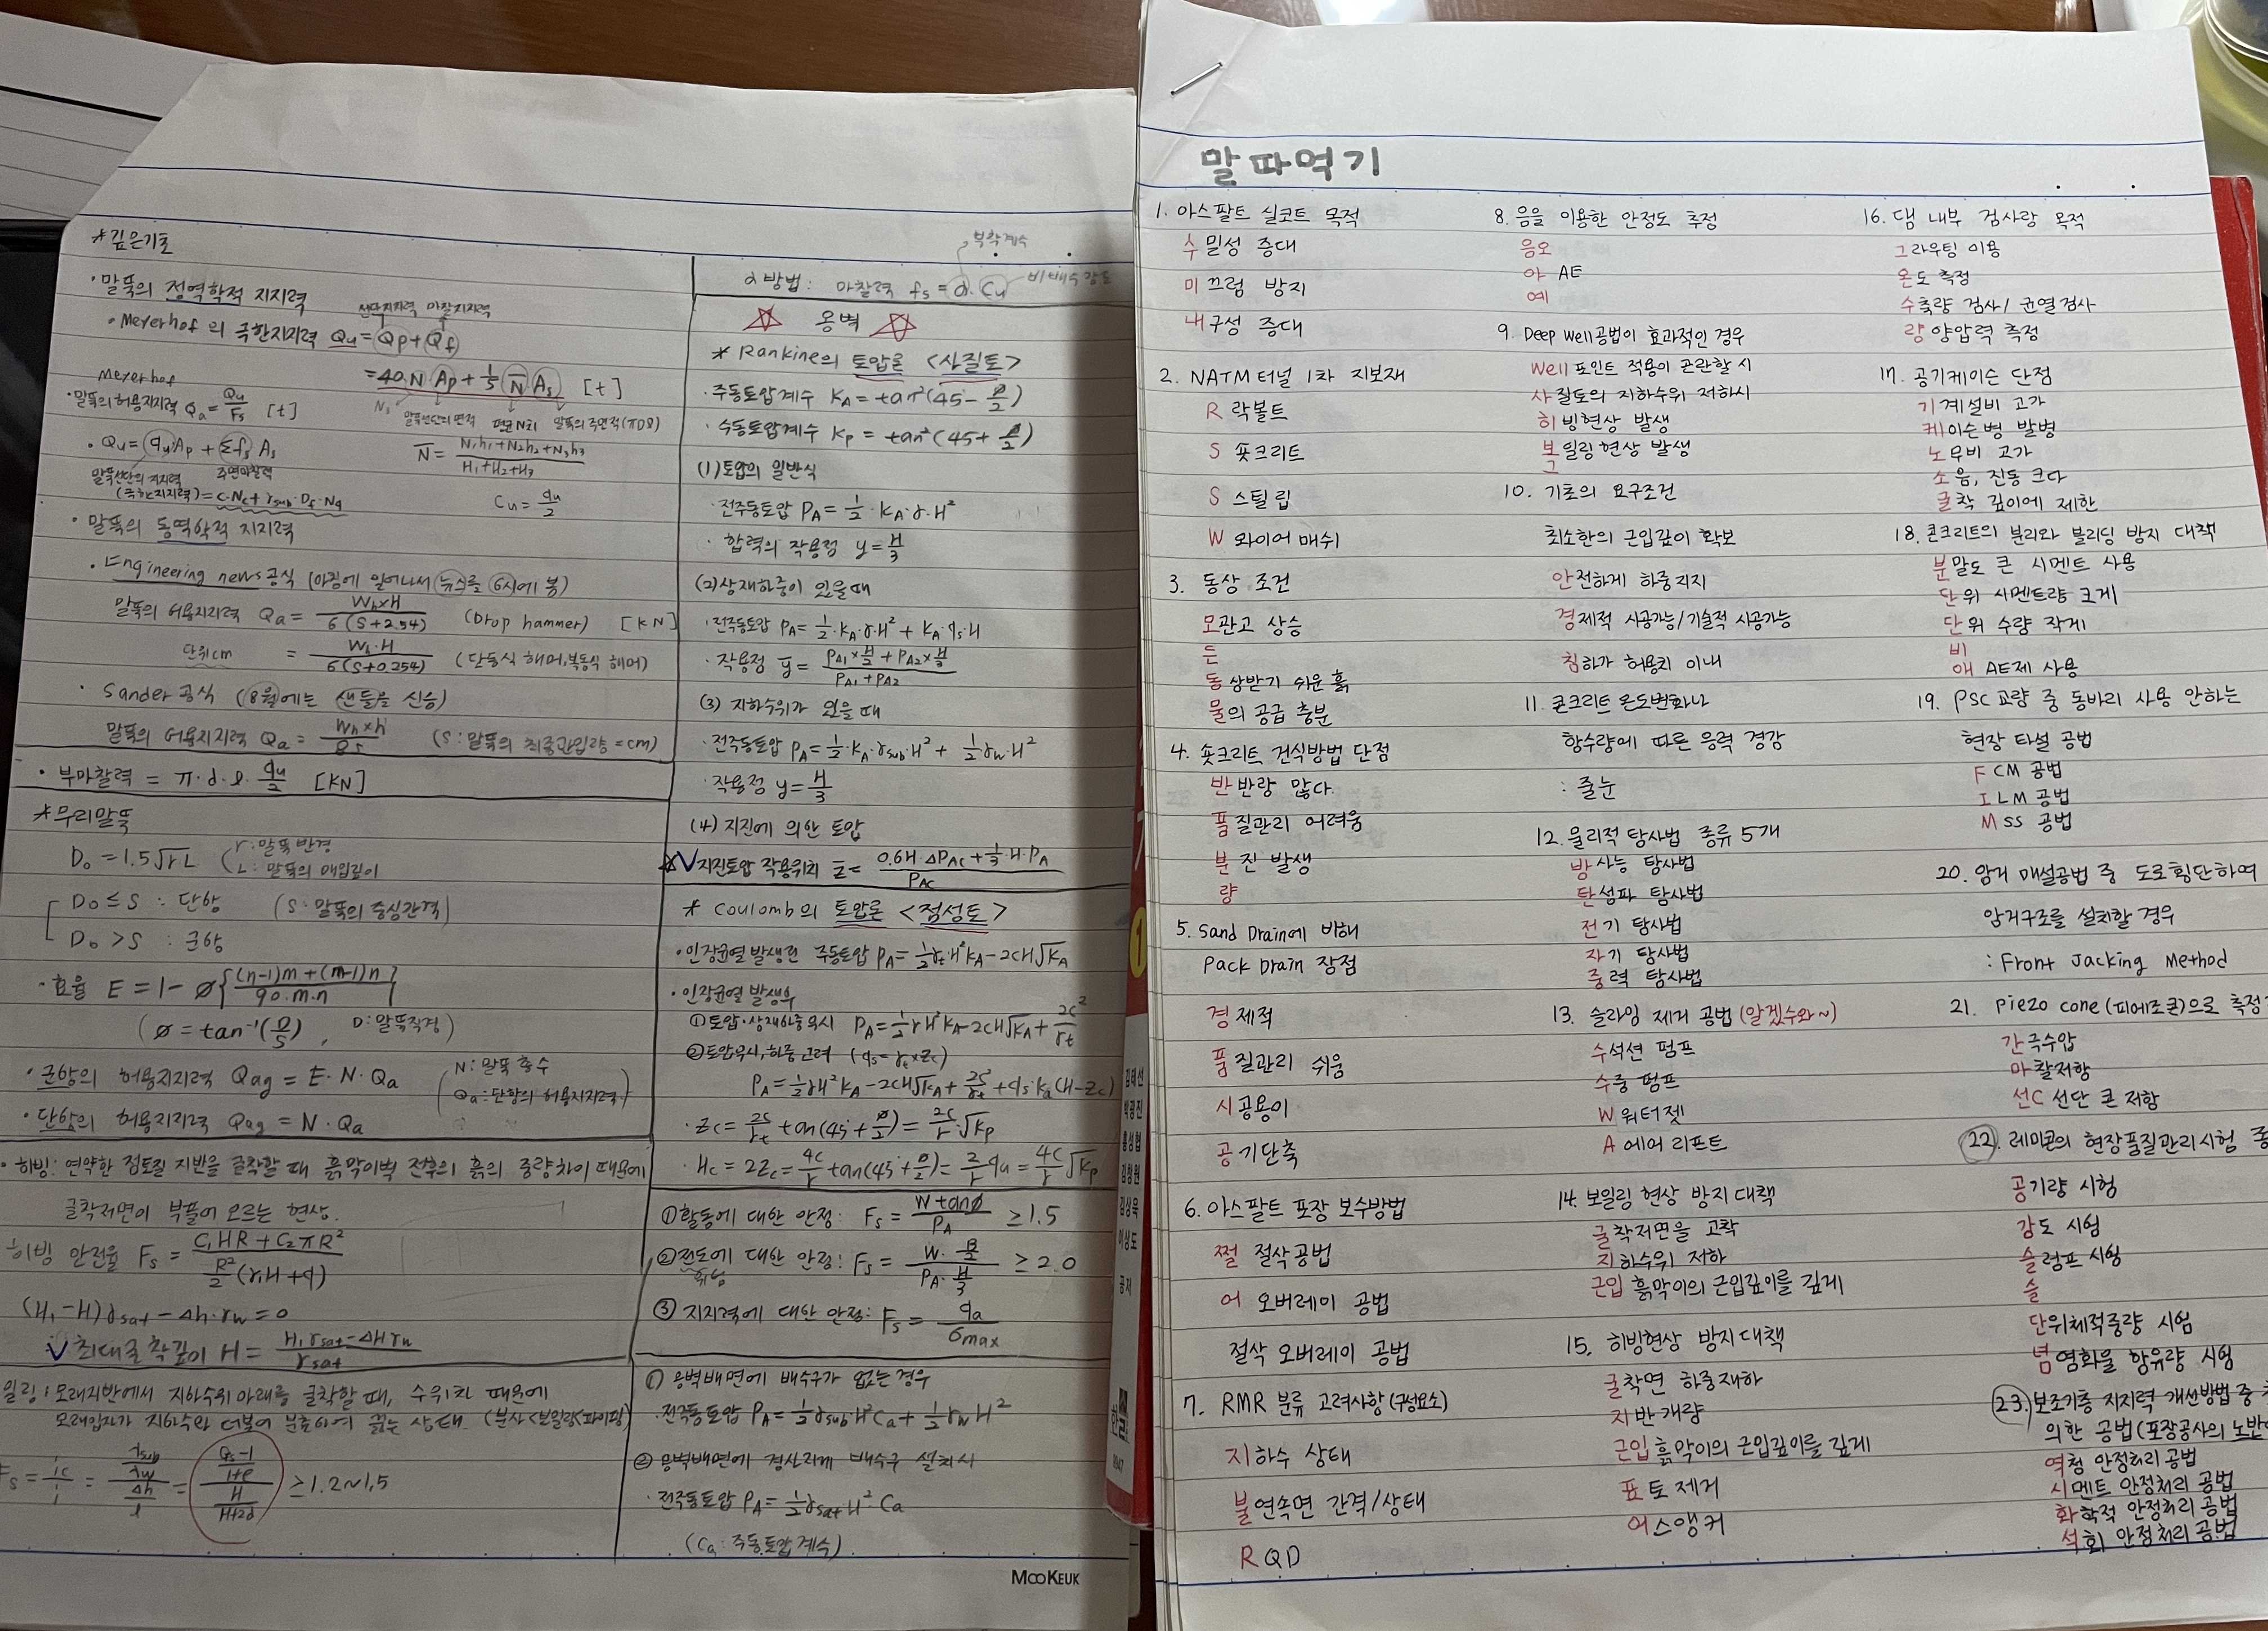 *깊은기초
·말뚝의 정역학적 지지력
선단지지력 마찰지지력
·Meyerhof의 극한지지력 Qu=Qp+Qf
=40·N·Ap+1/5 N̄ As [t]
말뚝선단의 면적 평균N치 말뚝의 주면적(πDl)
Meyerhof
·말뚝의 허용지지력 Qa=Qu/Fs [t]
N̄ = (N1h1+N2h2+N3h3)/(H1+H2+H3)
·Qu=qu·Ap+Σfs As
말뚝선단의 지지력 주면마찰력
(극한지지력)=C·Nc+rsub·Df·Nq
Cu=qu/2
·말뚝의 동역학적 지지력
·Engineering news공식 (아침에 일어나서 뉴스를 6시에 봄)
말뚝의 허용지지력 Qa = Wh×H/6(S+2.54) (Drop hammer) [KN]
단위cm = Wh·H/6(S+0.254) (단동식 해머,복동식 해머)
·Sander공식 (8월에는 샌들을 신승)
말뚝의 허용지지력 Qa = Wh×h/8S (S:말뚝의 최종관입량=cm)
·부마찰력 = π·d·l·qu/2 [KN]
*무리말뚝
D₀=1.5√rL (r:말뚝반경
L:말뚝의 매입깊이
D₀≤S : 단항 (S:말뚝의 중심간격)
D₀>S : 군항
·효율 E=1-∅{((n-1)m+(m-1)n)/90·m·n}
(∅=tan⁻¹(D/S), D:말뚝직경)
·군항의 허용지지력 Qag=E·N·Qa (N:말뚝 총수
Qa:단항의 허용지지력)
·단항의 허용지지력 Qag=N·Qa
·히빙: 연약한 점토질 지반을 굴착할 때 흙막이벽 전후의 흙의 중량차이 때문에
굴착저면이 부풀어 오르는 현상.
히빙 안전율 Fs = (C1HR+C2πR²)/(R²/2(r1H+q))
(H1-H)rsat-Δh·rw=0
√최대굴착깊이 H=(H1rsat-ΔHrw)/rsat
일링:모래지반에서 지하수위 아래를 굴착할 때, 수위차 때문에
모래입자가 지하수와 더불어 분출하여 끓는 상태. (분사<보일링<파이핑)
Fs = ic/i = (rsub/rw)/(Δh/l) = ((Gs-1)/(1+e))/(H/(H+2d)) ≥1.2~1.5
부착계수
α방법: 마찰력 fs=α·Cu 비배수강도
옹벽
*Rankine의 토압론 <사질토>
·주동토압계수 KA=tan²(45-∅/2)
·수동토압계수 Kp=tan²(45+∅/2)
(1)토압의 일반식
·전주동토압 PA=1/2·KA·r·H²
·합력의 작용점 y=H/3
(2)상재하중이 있을때
·전주동토압 PA=1/2·KA·r·H²+KA·qs·H
·작용점 ȳ=(PA1×H/2+PA2×H/3)/(PA1+PA2)
(3) 지하수위가 있을 때
·전주동토압 PA=1/2·KA·rsub·H²+1/2rw·H²
·작용점 y=H/3
(4)지진에 의한 토압
√지진토압 작용위치 z̄=(0.6H·ΔPAC+1/3·H·PA)/PAC
*Coulomb의 토압론 <점성토>
·인장균열발생전 주동토압 PA=1/2rt·H²KA-2CH√KA
·인장균열 발생후
①토압·상재하중무시 PA=1/2rH²KA-2CH√KA+2C²/rt
②토압무시,하중고려 (qs=rt×Zc)
PA=1/2rH²KA-2CH√KA+2C²/rt+qs·Ka(H-Zc)
·Zc=2C/rt tan(45+∅/2)=2C/r·√Kp
·Hc=2Zc=4C/r tan(45+∅/2)=2/r qu=4C/r √Kp
①활동에 대한 안정: Fs=Wtan∅/PA ≥1.5
②전도에 대한 안정: Fs=(W·B/2)/(PA·H/3) ≥2.0
③지지력에 대한 안정: Fs=qa/σmax
① 옹벽배면에 배수구가 없는 경우
·전주동토압 PA=1/2rsub·H²Ca+1/2rwH²
② 옹벽배면에 경사지게 배수구 설치시
·전주동토압 PA=1/2rsat·H²·Ca
(Ca:주동토압계수)
MOOKEUK
말따먹기
1. 아스팔트 실코트 목적
수밀성 증대
미끄럼 방지
내구성 증대
2. NATM터널 1차 지보재
R 락볼트
S 숏크리트
S 스틸립
W 와이어매쉬
3. 동상 조건
모관고 상승
든
동상받기 쉬운 흙
물의 공급 충분
4. 숏크리트 건식방법 단점
반반량 많다.
품질관리 어려움
분진 발생
량
5. Sand Drain에 비해
Pack Drain 장점
경제적
품질관리 쉬움
시공용이
공기단축
6. 아스팔트 포장 보수방법
쩔 절삭공법
어 오버레이 공법
절삭 오버레이 공법
7. RMR 분류 고려사항(구성요소)
지하수 상태
불연속면 간격/상태
RQD
8. 음을 이용한 안정도 측정
음오
아 AE
예
9. Deep Well공법이 효과적인 경우
Well포인트 적용이 곤란할 시
사질토의 지하수위 저하시
히빙현상 발생
보일링현상 발생
그
10. 기초의 요구조건
최소한의 근입깊이 확보
안전하게 하중지지
경제적 시공가능/기술적 시공가능
침하가 허용치 이내
11. 콘크리트 온도변화나
함수량에 따른 응력 경감
: 줄눈
12. 물리적 탐사법 종류 5개
방사능 탐사법
탄성파 탐사법
전기 탐사법
자기 탐사법
중력 탐사법
13. 슬라임 제거 공법 (알겠수와~)
수석션 펌프
수중 펌프
W 워터젯
A 에어 리프트
14. 보일링 현상 방지 대책
굴착저면을 고착
지하수위 저하
근입 흙막이의 근입깊이를 깊게
15. 히빙현상 방지 대책
굴착면 하중재하
지반개량
근입 흙막이의 근입깊이를 깊게
표토제거
어스앵커
16. 댐 내부 검사랑 목적
그라우팅 이용
온도 측정
수축량 검사/균열검사
량 양압력 측정
17. 공기케이슨 단점
기계설비 고가
케이슨병 발병
노무비 고가
소음, 진동 크다
굴착 깊이에 제한
18. 콘크리트의 분리와 블리딩 방지 대책
분말도 큰 시멘트 사용
단위 시멘트량 크게
단위 수량 작게
비
애 AE제 사용
19. PSC교량 중 동바리 사용 안하는
현장 타설 공법
FCM 공법
ILM 공법
MSS 공법
20. 암거 매설공법 중 도로횡단하여
암거구조를 설치할 경우
: Front Jacking Method
21. Piezo cone(피에조콘)으로 측정
간극수압
마찰저항
선C 선단 콘 저항
22. 레미콘의 현장품질관리시험 종
공기량 시험
강도 시험
슬럼프 시험
슬
단위체적중량 시험
념 염화물 함유량 시험
23. 보조기층 지지력 개선방법 중
의한 공법(포장공사의 노반
역청 안정처리 공법
시멘트 안정처리 공법
화학적 안정처리 공법
석회 안정처리 공법